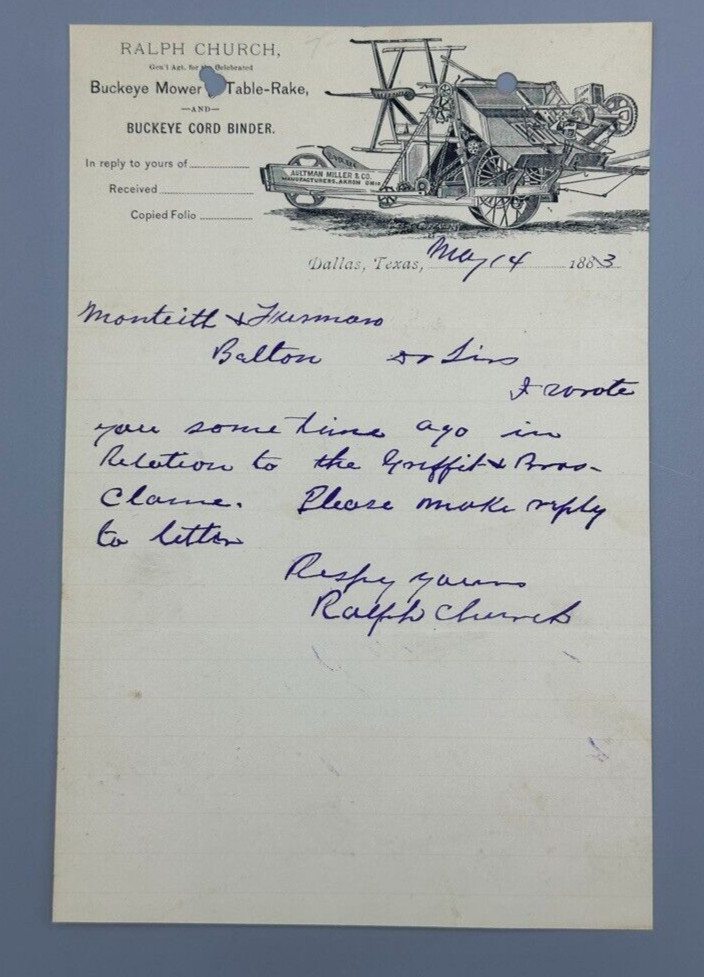 RALPH CHURCH,
Gen'l Agt. for the Celebrated
Buckeye Mower Table-Rake,
—AND—
BUCKEYE CORD BINDER.
In reply to yours of
Received
Copied Folio
AULTMAN MILLER & CO.
MANUFACTURERS, AKRON OHIO
Dallas, Texas, May 14 1883
Monteith &
Belton Dr Sirs
I wrote
you some time ago in
Relation to the Griffit & Bros-
Clame. Please make reply
to letter
Respy yours
Ralph Church